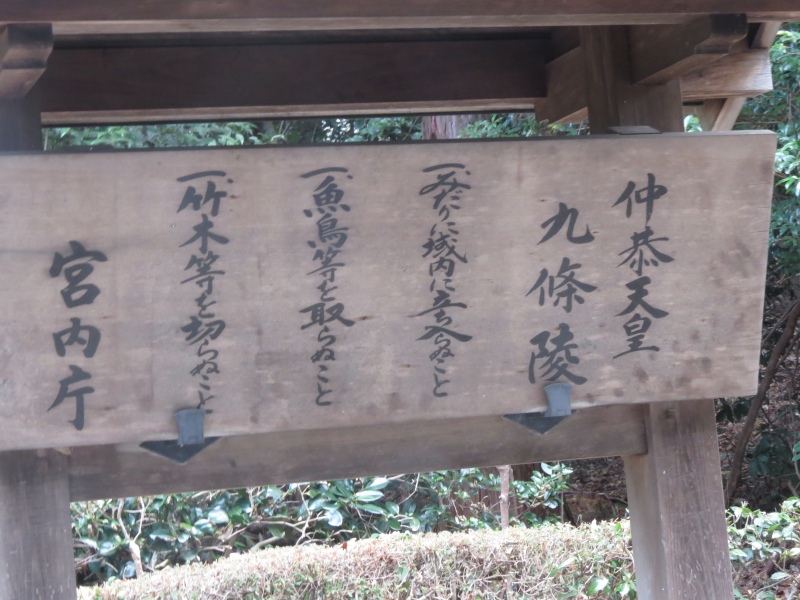 仲恭天皇
九條陵
一、みだりに域内に立ち入らぬこと
一、魚鳥等を取らぬこと
一、竹木等を切らぬこと
宮内庁